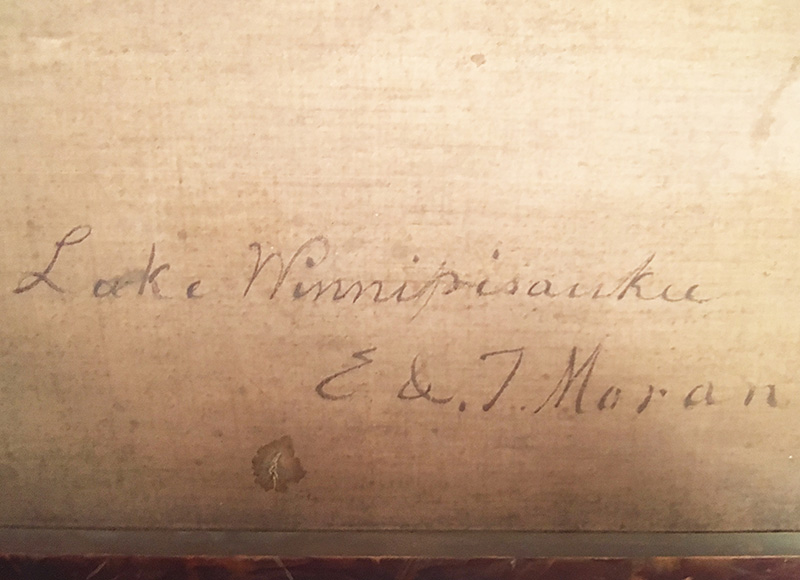 Lake Winnipisaukee
E &. T. Moran